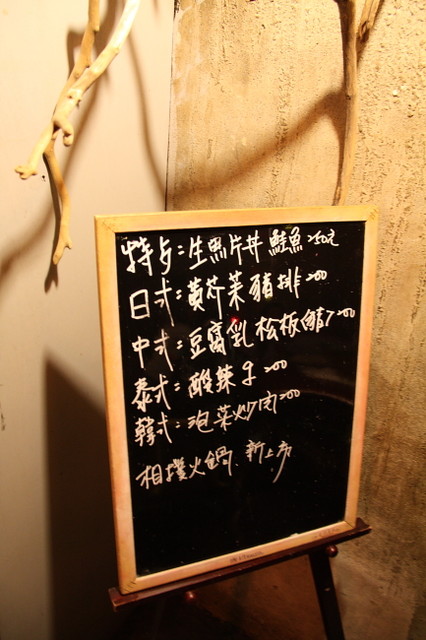 特与:生魚片丼 鮭魚250元
日式:黃芥茉豬排200
中式:豆腐乳松板豬200
泰式:酸辣200
韓式:泡菜炒肉200
相撲火鍋、新上市